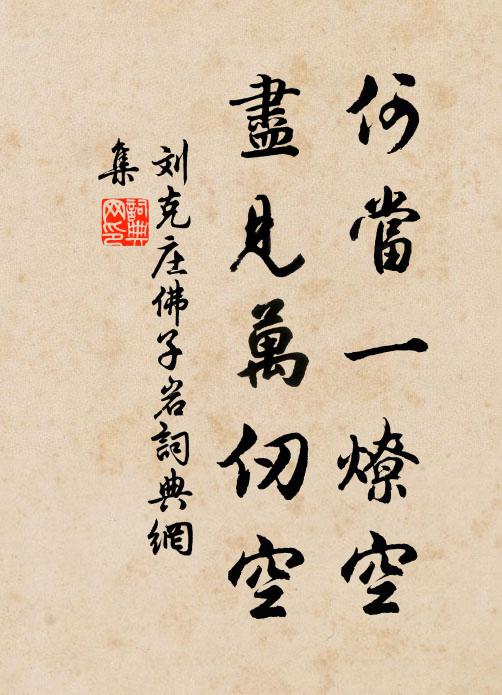 何當一燎空
盡見萬仞空
刘克庄佛子岩詞典網
集
詞典
网印